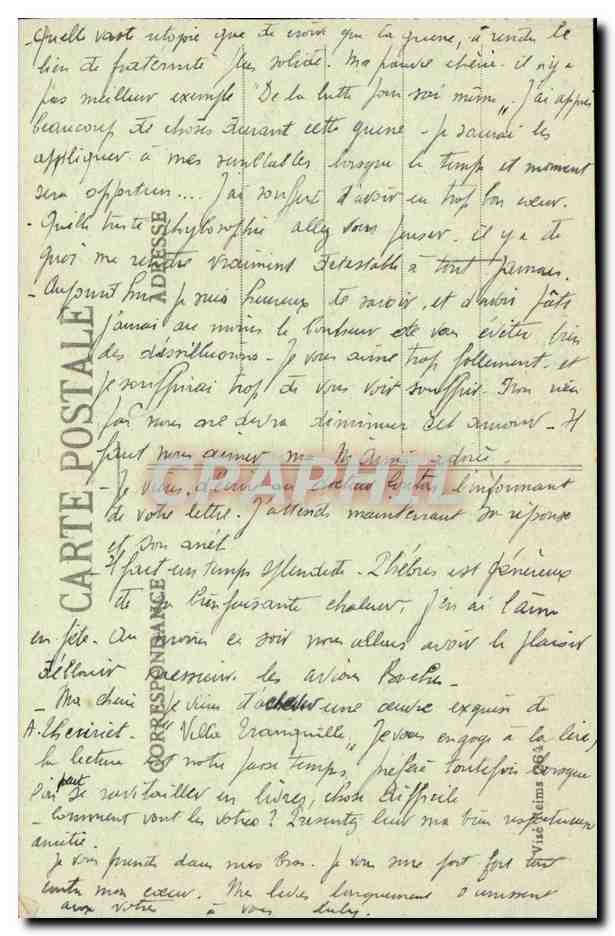 - Quelle vaste utopie que de croire que la guerre, a rendu le
lien de fraternité plus solide. Ma pauvre chérie il n'y a
pas meilleur exemple "De la lutte pour soi même". J'ai appris
beaucoup de choses durant cette guerre - Je saurai les
appliquer à mes semblables lorsque le temps et moment
sera opportun.... J'ai souffert d'avoir eu trop bon cœur.
- Quelle triste phylosophie allez vous penser. il y a de
quoi me rendre vraiment détestable à tout jamais.
- Aujourd'hui je suis heureux de savoir, et
j'aurai au moins le bonheur de vous éviter bien
des désillusions - Je vous aime trop follement et
je souffrirai trop de vous voir souffrir.
pas nous ne devra diminuer cet amour - Il
faut nous aimer ma adorée.
- Je viens d'écrire au l'informant
de votre lettre. J'attends maintenant sa réponse
et son arrêt
Il fait un temps splendide - Phébus est généreux
de sa bienfaisante chaleur, j'en ai l'âme
en fête - Au moins ce soir nous allons avoir le plaisir
d'éblouir messieurs les avions Boches -
- Ma chérie je viens d'achever une œuvre exquise de
A. Theuriet - "Villa Tranquille" Je vous engage à la lire,
la lecture est notre passe temps, préféré toutefois lorsque
l'on peut se ravitailler en livres, chose difficile
- Comment vont les vôtres? Présentez leur ma bien respectueuse
amitié.
Je vous prends dans mes bras. Je vous serre fort fort tout
contre mon cœur. Mes lèvres longuement s'unissent
aux vôtres à vous
CARTE POSTALE
CORRESPONDANCE
ADRESSE
Visé Reims 264
CPAPHIL